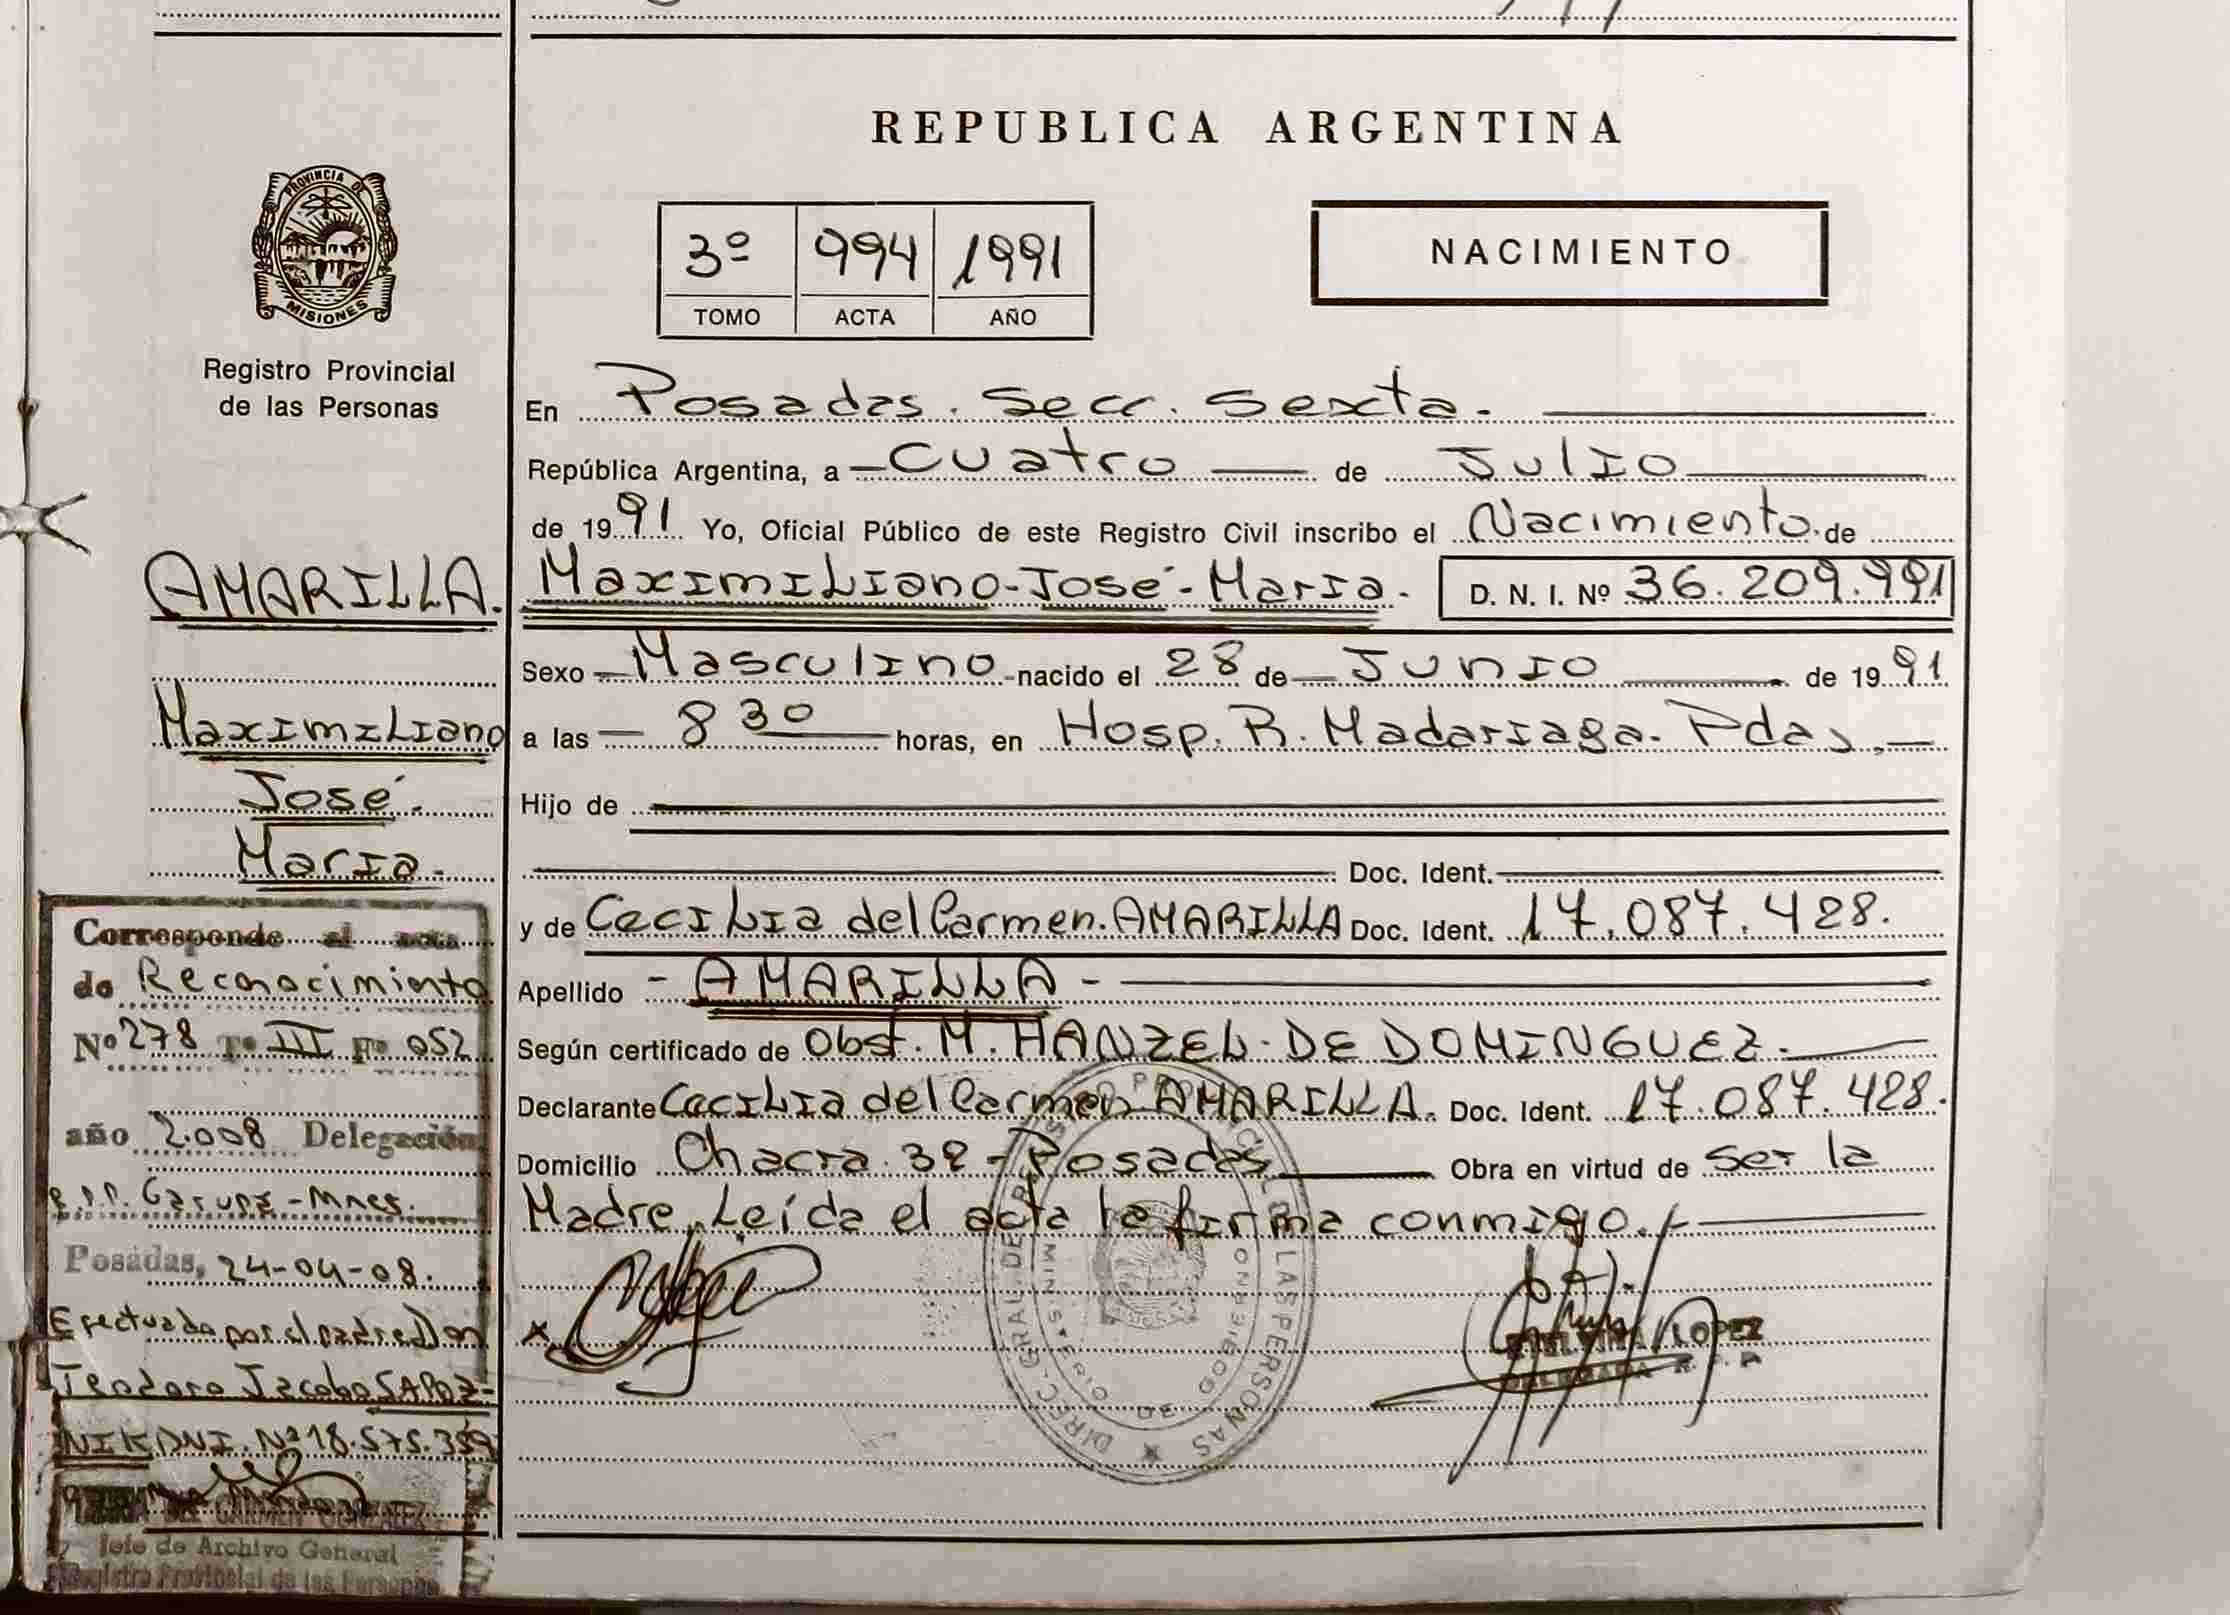 REPUBLICA ARGENTINA
PROVINCIA DE
MISIONES
Registro Provincial
de las Personas
3º 994 1991
TOMO ACTA AÑO
NACIMIENTO
En Posadas. Secc. Sexta.
República Argentina, a Cuatro de Julio
de 1991 Yo, Oficial Público de este Registro Civil inscribo el Nacimiento de
AMARILLA. Maximiliano-José-Maria. D. N. I. Nº 36.209.991
Sexo Masculino nacido el 28 de Junio de 1991
Maximiliano
a las 8 30 horas, en Hosp. R. Madariaga. Pdas.
José.
Hijo de
Maria.
Doc. Ident.
y de Cecilia del Carmen. AMARILLA Doc. Ident. 17.087.428.
Apellido - AMARILLA -
Según certificado de Obst. M. HANZEL. DE DOMINGUEZ.
Declarante Cecilia del Carmen AMARILLA. Doc. Ident. 17.087.428.
Domicilio Chacra 32 - Posadas Obra en virtud de ser la
Madre. Leída el acta la firma conmigo.
Corresponde al acta
de Reconocimiento
Nº 278 Tº III Fº 052
año 2.008 Delegación
Garupá - Mnes.
Posadas, 24-04-08.
Efectuado por el padre Don
Teodoro Jacobo SAPOZ-
NIK DNI. Nº 18.575.359
DEL CARMEN GONZALEZ
Jefe de Archivo General
Registro Provincial de las Personas
DIREC. GRAL. DE REGISTRO PROVINCIAL DE LAS PERSONAS
MINIS DE GOBIERNO
LOPEZ
DELEGADA R. P. P.